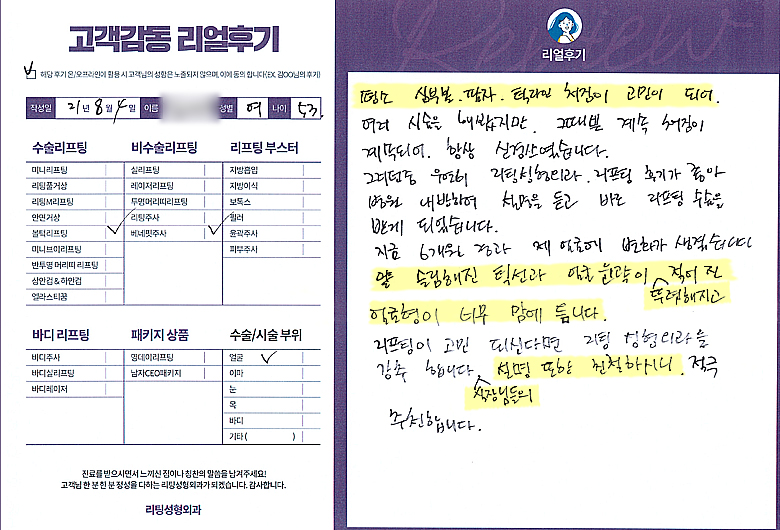 고객감동 리얼후기
해당 후기 온/오프라인이 활용 시 고객님의 성함은 노출되지 않으며, 이에 동의 합니다(EX. 김OO님의 후기)
작성일 21년 8월 4일 이름 성별 여 나이 53.
수술리프팅
미니리프팅
리팅풀거상
리팅M리프팅
안면거상
볼탁리프팅
미니브이리프팅
반투명 머리띠 리프팅
상안검 & 하안검
엘라스티꿈
비수술리프팅
실리프팅
레이저리프팅
투명머리띠리프팅
리팅주사
베네핏주사
리프팅 부스터
지방흡입
지방이식
보톡스
필러
윤곽주사
피부주사
바디 리프팅
바디주사
바디실리프팅
바디레이저
패키지 상품
영데이리프팅
남자CEO패키지
수술/시술 부위
얼굴
이마
눈
목
바디
기타 ( )
진료를 받으시면서 느끼신 점이나 칭찬의 말씀을 남겨주세요!
고객님 한 분 한 분 정성을 다하는 리팅성형외과가 되겠습니다. 감사합니다.
리팅성형외과
Review
리얼후기
평소 심부볼. 팔자. 턱라인 처짐이 고민이 되어.
여러 시술을 해봤지만. 그때뿐 계속 처짐이
계속되어. 항상 신경쓰였습니다.
그러던중 우연히 리팅성형외과. 리프팅 후기가 좋아
병원 내방하여 설명을 듣고 바로 리프팅 수술을
받게 되었습니다.
지금 6개월 경과 제 얼굴에 변화가 생겼습니다
얄 슬림해진 턱선과 얼굴 윤곽이 적어진
뚜렷해지고
얼굴형이 너무 맘에 듭니다.
리프팅이 고민 되신다면 리팅 성형외과를
강추 합니다. 설명 또한 친절하시니. 적극
실장님들의
추천합니다.